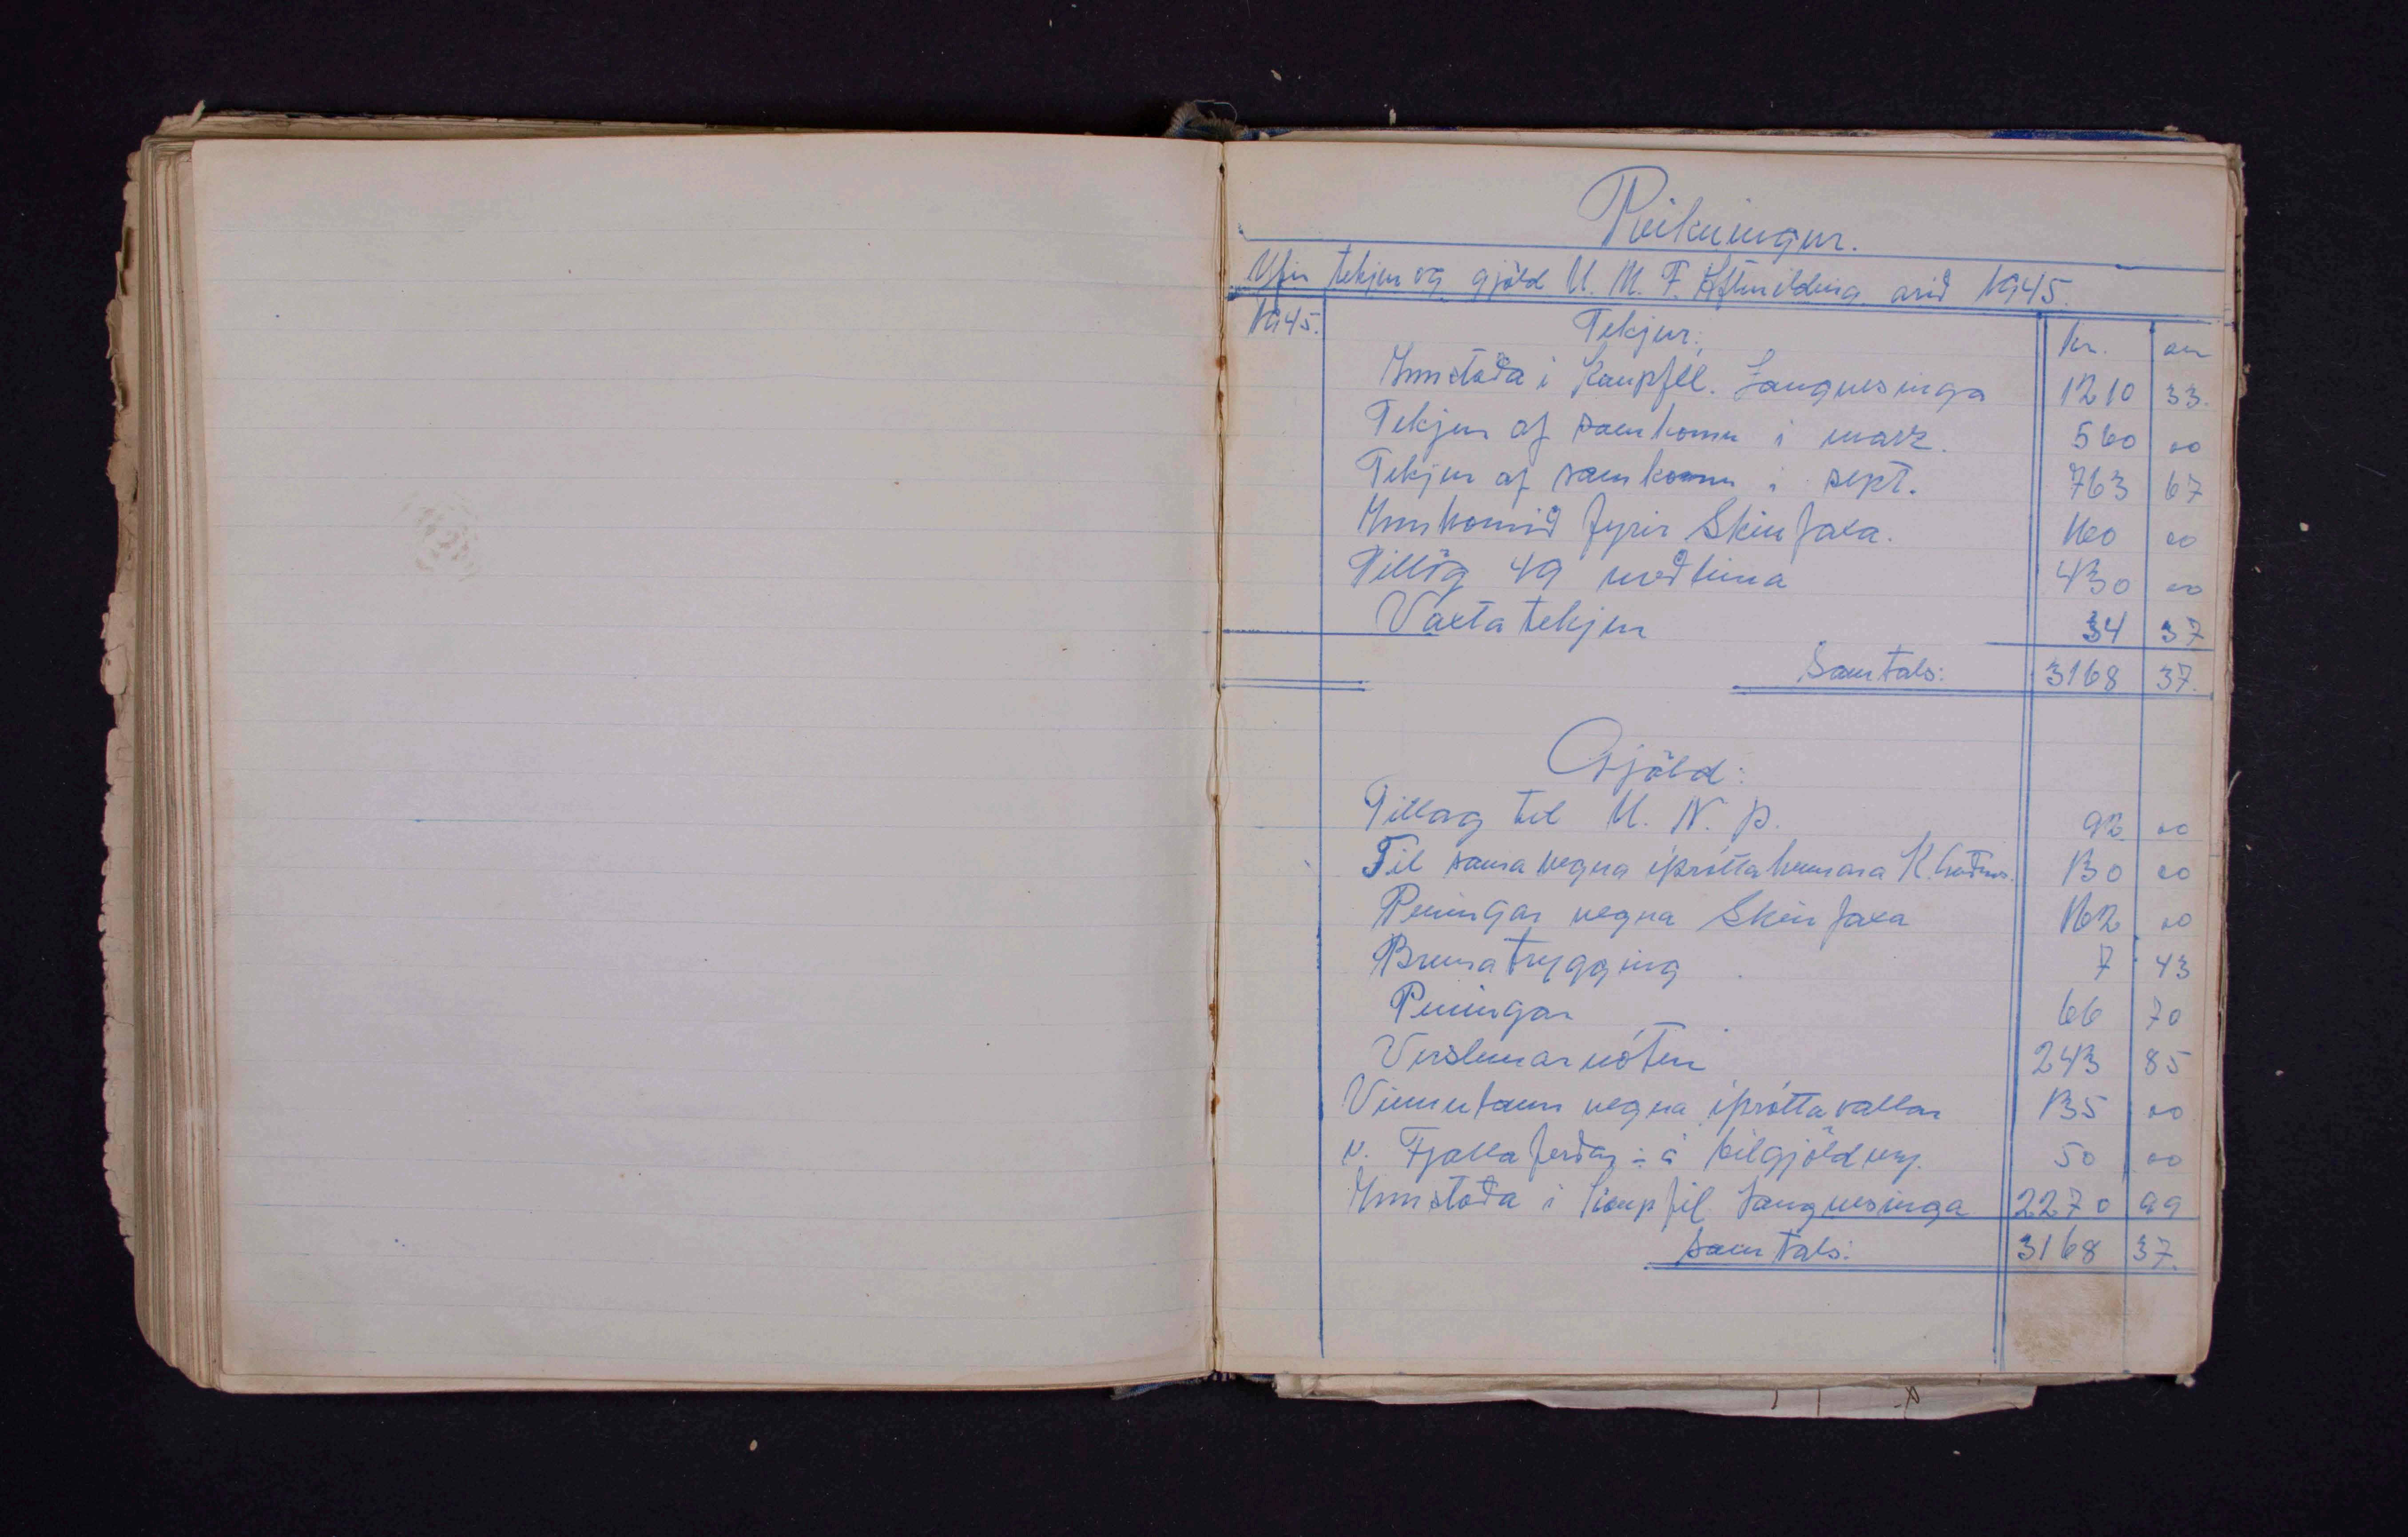 Reikningur.
Yfir tekjur og gjöld U. M. F. Afturelding arið 1945.
1945. Tekjur: kr. aur
Innstaða i Kaupfél. Langnesinga 1210 33.
Tekjur af samkomu i marz. 560 00
Tekjur af samkomu i sept. 763 67
Innkomið fyrir Skinfaxa. 160 00
Tillög 49 meðlima 430 00
Vaxta tekjur 34 37
Samtals: 3168 37.
Gjöld:
Tillag til U. N. Þ. 92 00
Til sama vegna iþróttakennara 130 00
Peningar vegna Skinfaxa 162 00
Brunatrygging 7 43
Peningar 66 70
Verslunarnótur 243 85
Vinnulaun vegna iþróttavallar 135 00
v. Fjallaferðar ÷ á bilgjöldum. 50 00
Innstaða i Kaupfél. Langnesinga 2270 99
Samtals: 3168 37.